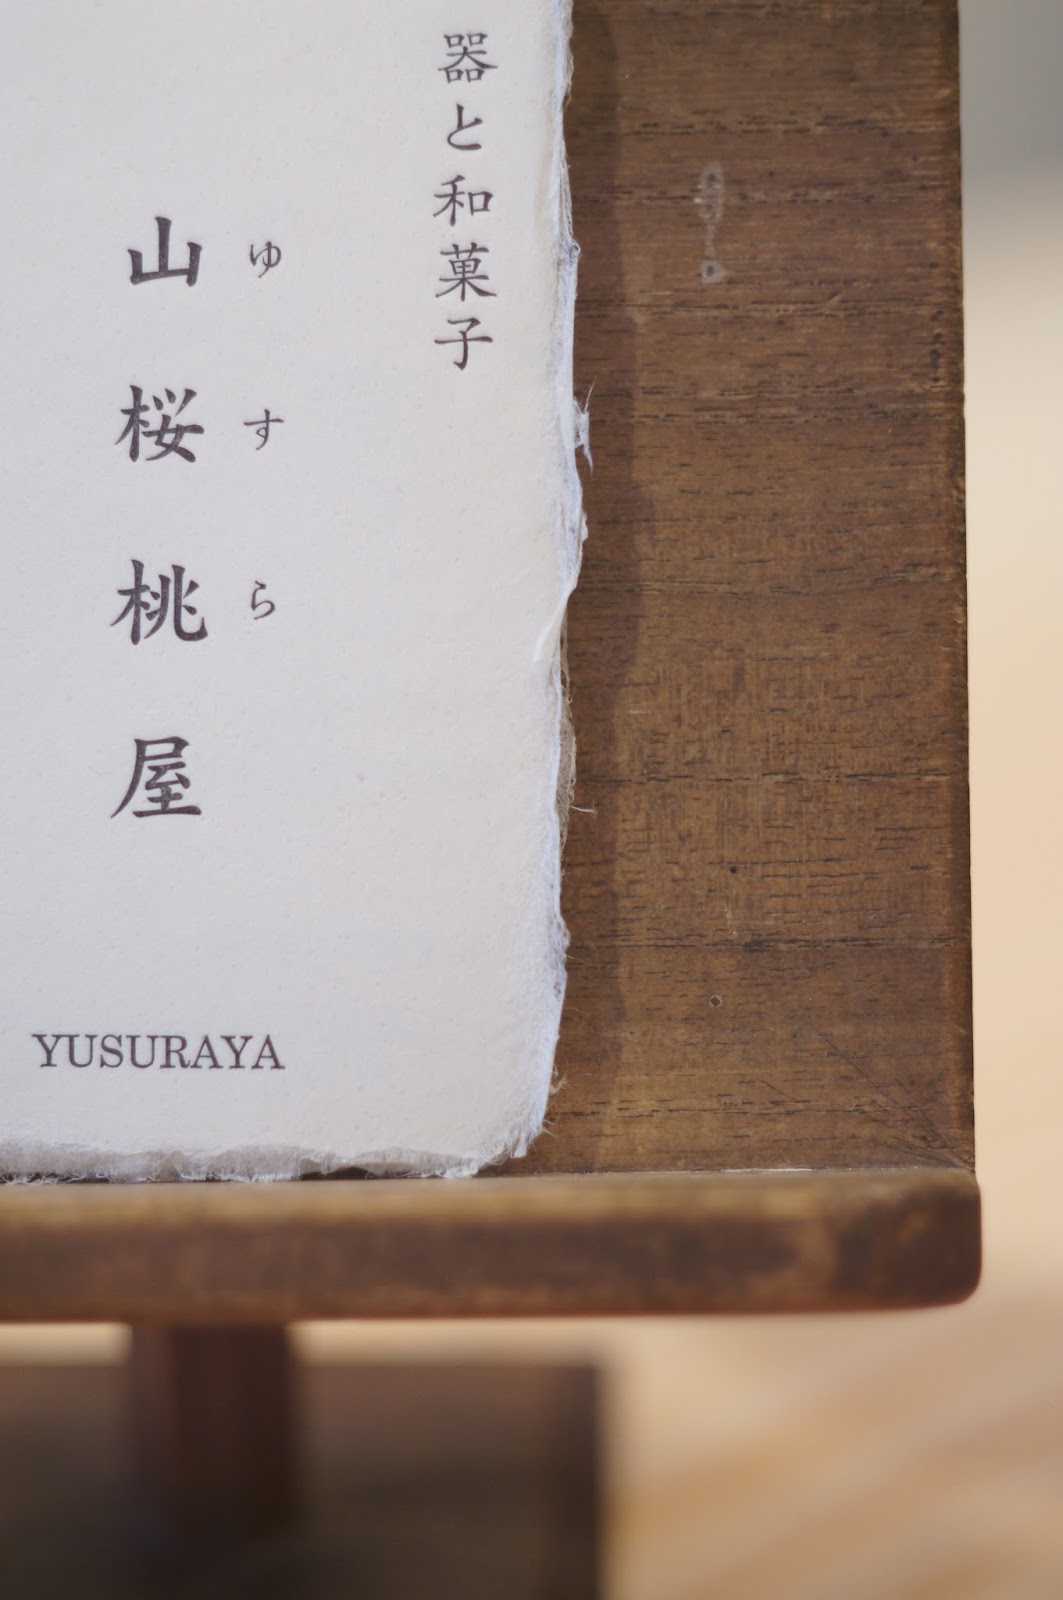 器と和菓子
ゆすら
山桜桃屋
YUSURAYA